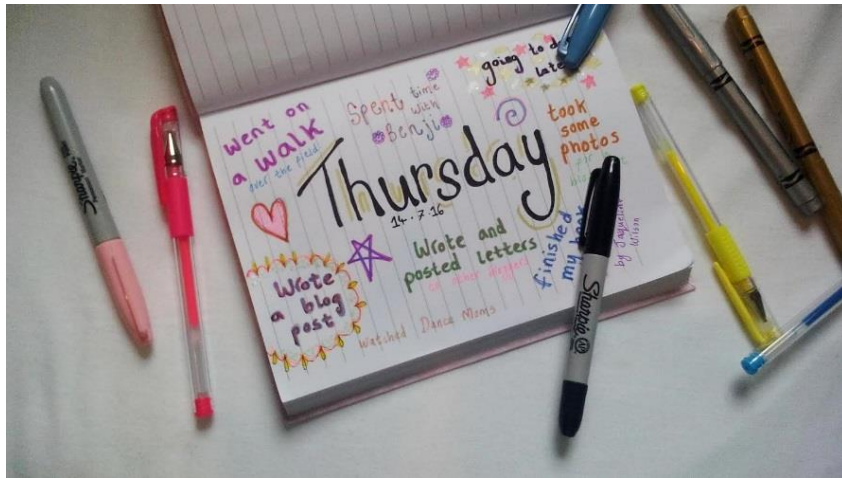 went on
a walk
over the field
Spent time
with
Benji
going to
late
took
some
photos
Thursday
14.7.16
Wrote and
posted letters
to other bloggers
finished
my book
by Jaqueline
Wilson
Wrote
a blog
post
Watched Dance Moms
Sharpie
Sharpie